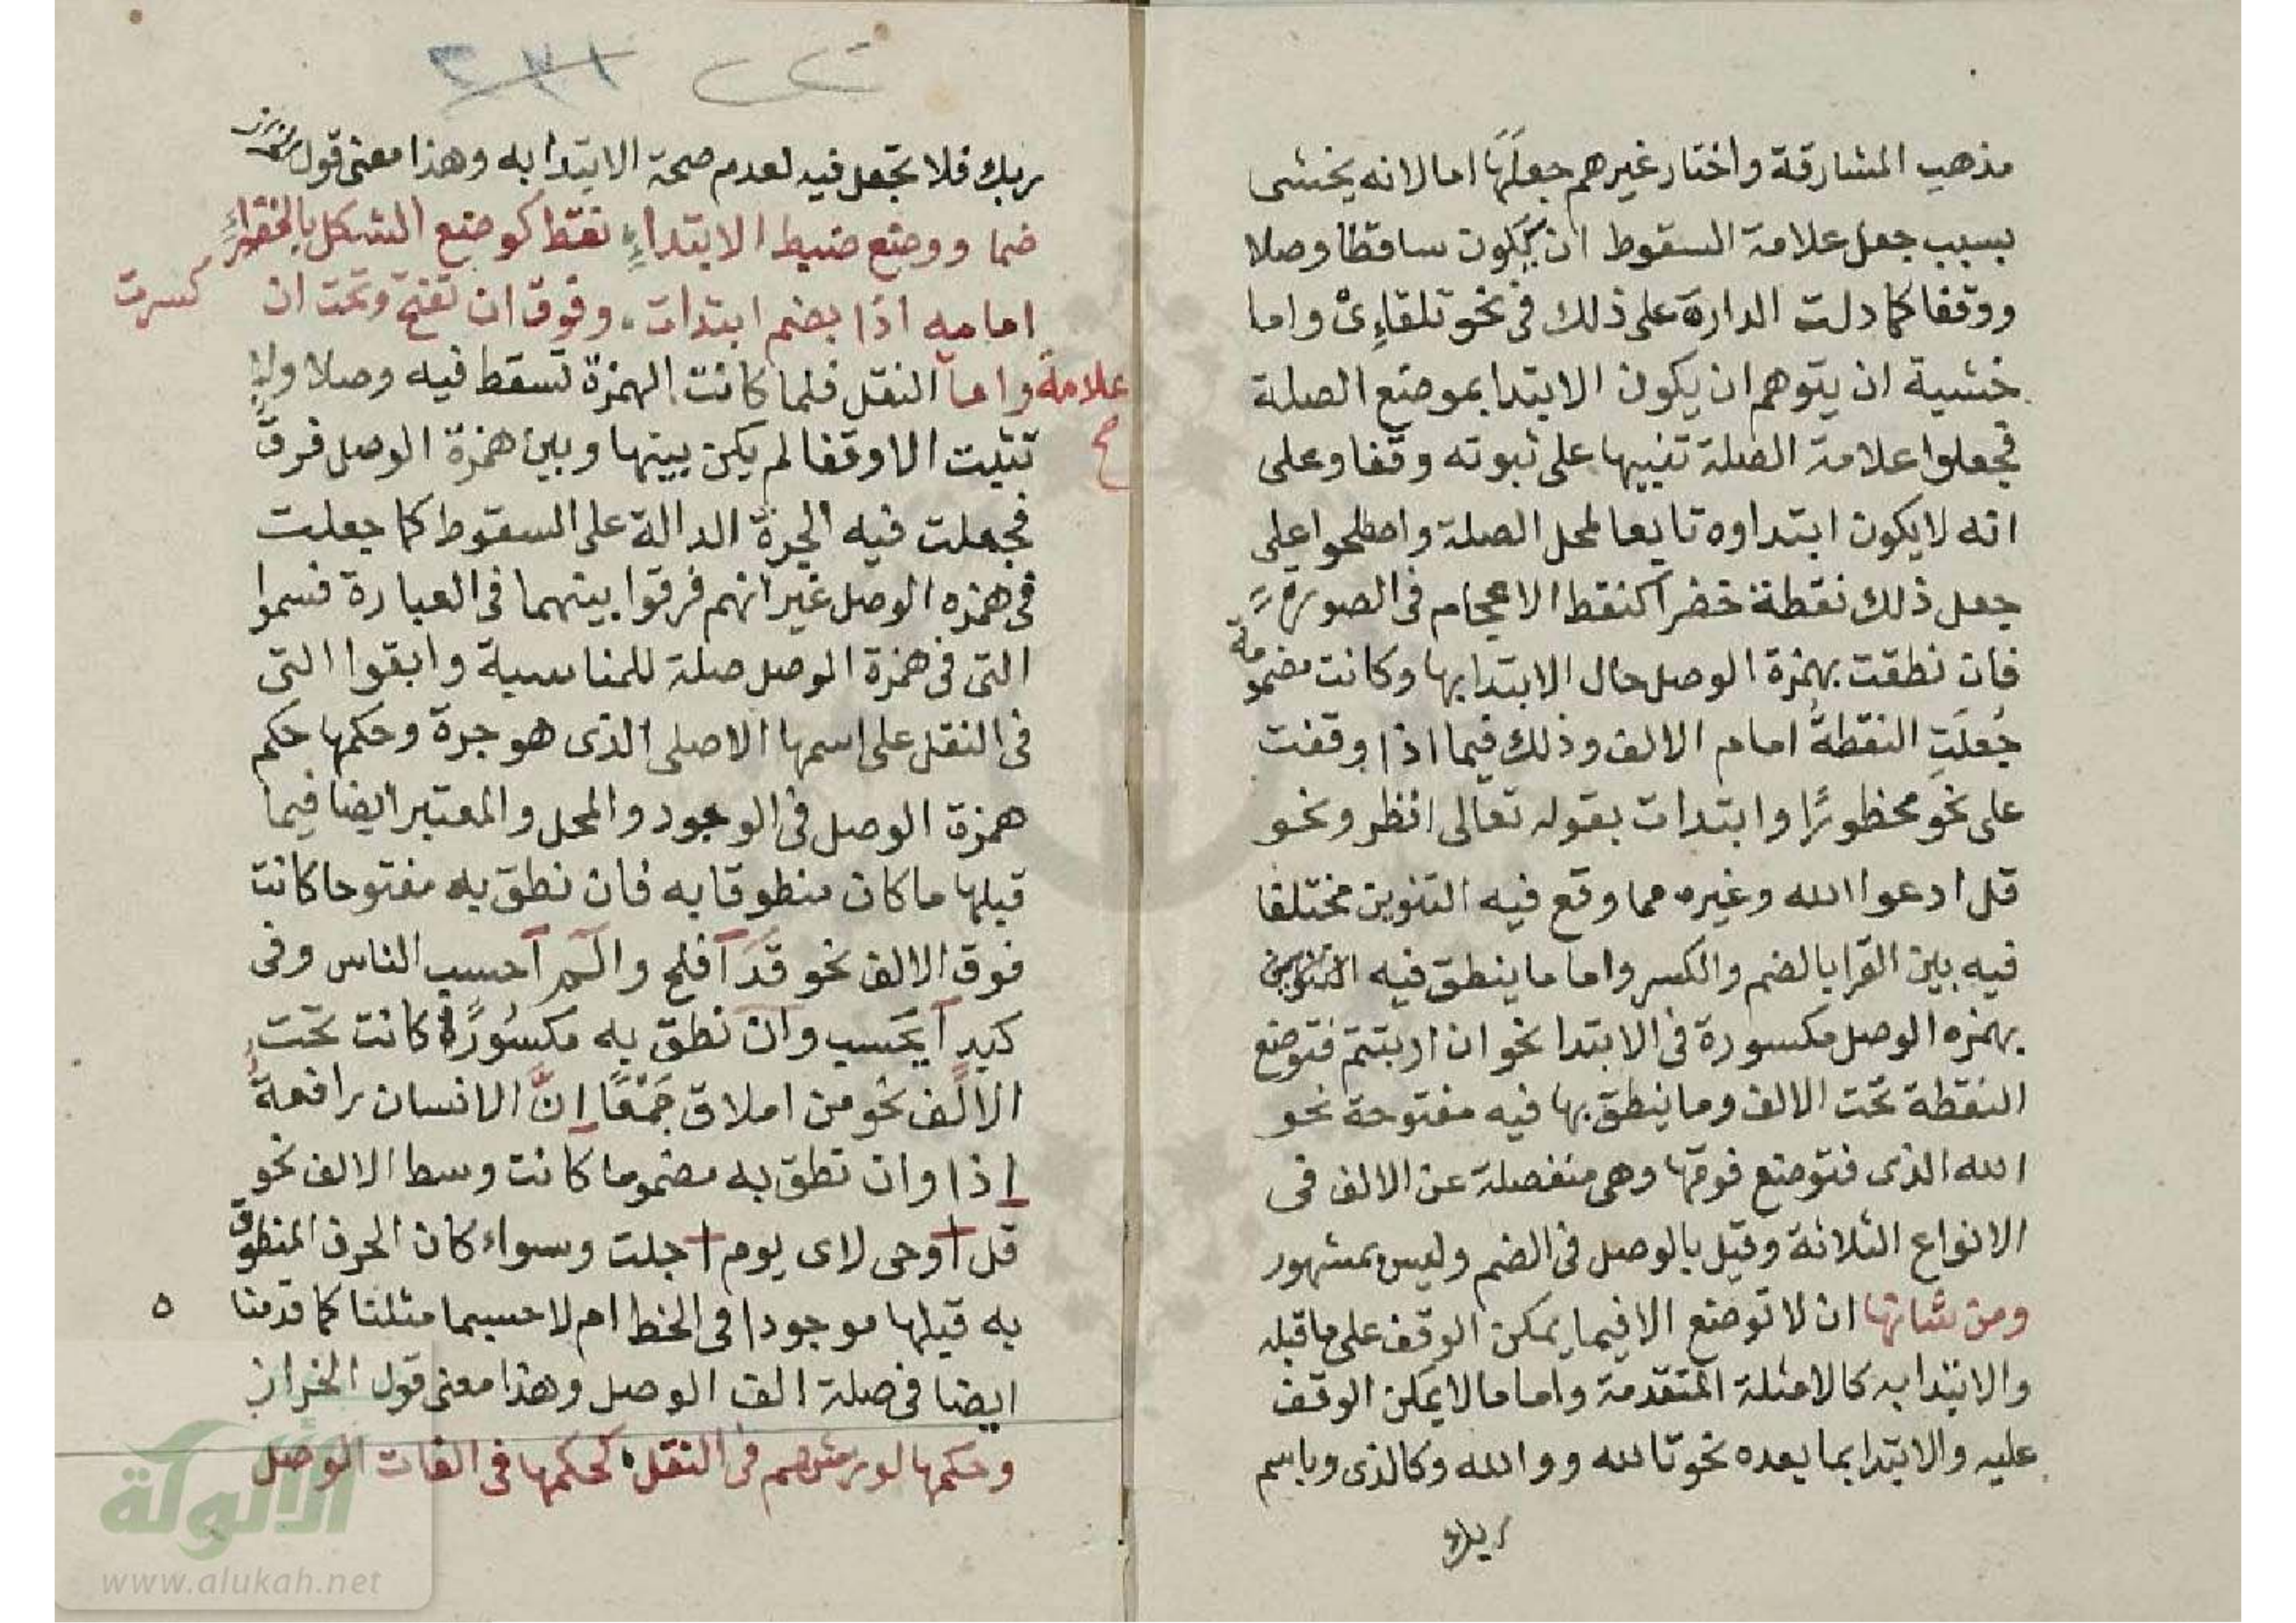 مذهب المشارقة واختار غيرهم جعلَهَا اما لانه يخشى
بسبب جعل علامة السقوط ان يكون ساقطا وصلا
ووقفا كما دلت الدارة على ذلك فى نحو تلقاءِىْ واما
خشية ان يتوهم ان يكون الابتدا بموضع الصلة
فجعلوا علامة الصلة تنبيها على ثبوته وقفا وعلى
انه لا يكون ابتداوه تابعا لمحل الصلة واصطلحوا على
جعل ذلك نقطة خضرا كنقط الاعجام فى الصورة
فان نطقت بهمزة الوصل حال الابتدا بها وكانت مضمومة
جُعلَتِ النقطةُ امام الالف وذلك فيما اذا وقفت
على نحو محظورًا وابتدات بقوله تعالى انظر ونحو
قل ادعوا الله وغيره مما وقع فيه التنوين مختلفا
فيه بين القرا بالضم والكسر واما ما ينطق فيه
بهمزه الوصل مكسورة فى الابتدا نحو ان اربتتم فتوضع
النقطة تحت الالف وما ينطق بها فيه مفتوحة نحو
الله الذى فتوضع فوقها وهى منفصلة عن الالف فى
الانواع الثلاثة وقيل بالوصل فى الضم وليس بمشهور
ومن شانها ان لا توضع الا فيما يمكن الوقف على ما قبله
والابتدا به كالامثلة المتقدمة واما ما لا يمكن الوقف
عليه والابتدا بما بعده نحو تالله ووالله وكالذى وباسم
ربك
٢٣١
ربك فلا تجعل فيه لعدم صحة الابتدا به وهذا معنى قول
ضما ووضع ضبط الابتداءِ نقط كوضع الشكل بالخضراءِ
امامه اذا بضم ابتدات وفوق ان تفتح وتحت ان كسرت
علامة واما النقل فلما كانت الهمزة تسقط فيه وصلا ولا
صح
تثبت الا وقفا لم يكن بينها وبين همزة الوصل فرق
فجعلت فيه الجرة الدالة على السقوط كما جعلت
فى همزه الوصل غير انهم فرقوا بينهما فى العبارة فسموا
التى فى همزة الوصل صلة للمناسبة وابقوا التى
فى النقل على اسمها الاصلى الذى هو جرة وحكمها حكم
همزة الوصل فى الوجود والمحل والمعتبر ايضا فيما
قبلها ما كان منطوقا به فان نطق به مفتوحا كانت
فوق الالف نحو قَدَ افلح والـم احسب الناس وفى
كبد ايحسب وان نطق به مكسُورًا كانت تحت
الالف نحو من املاق جَمْعًا اِنَّ الانسان رافعة
اذا وان نطق به مضموما كانت وسط الالف نحو
قل اوحى لاى يوم اجلت وسواء كان الحرف المنطوق
به قبلها موجودا فى الخط ام لا حسبما مثلنا كما قدمنا
٥
ايضا فى صلة الف الوصل وهذا معنى قول الخراز
وحكمها لورشهم فى النقل كحكمها فى الفات الوصل
الألوكة
www.alukah.net